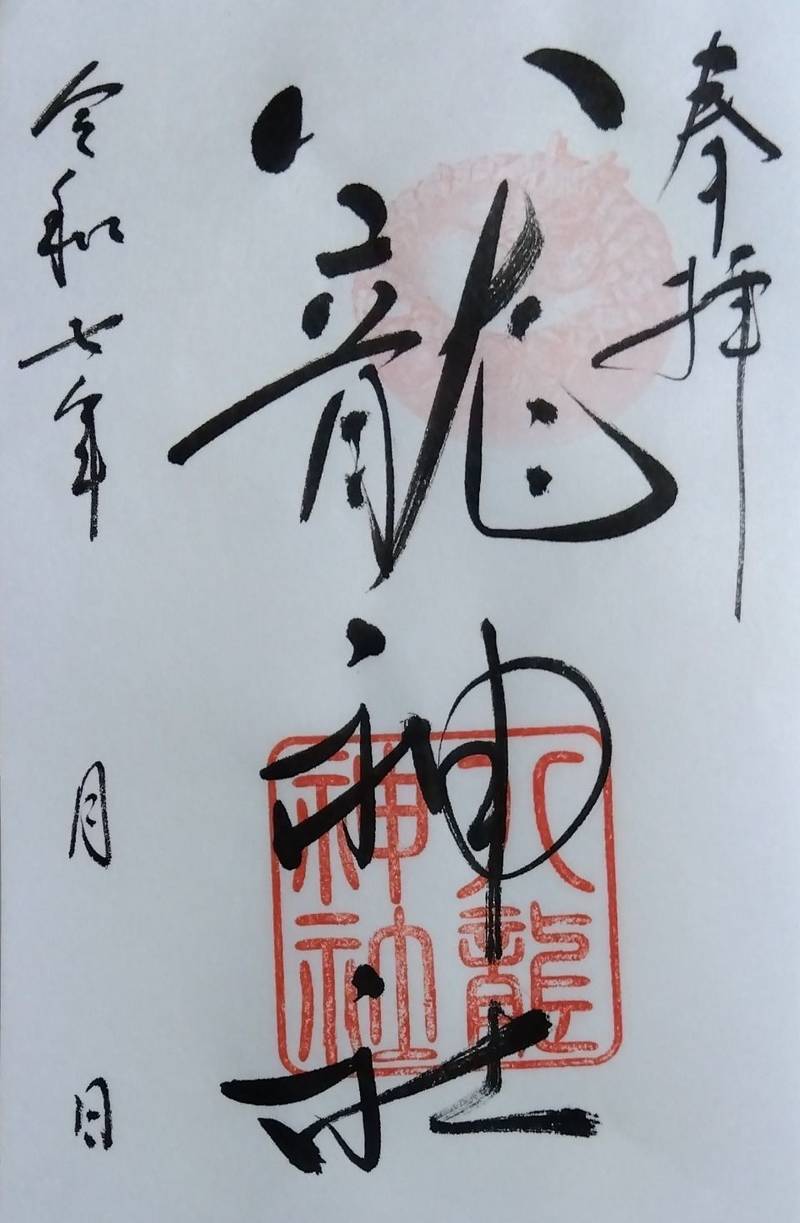 奉拝
八龍神社
八龍
神社
令和七年 月 日